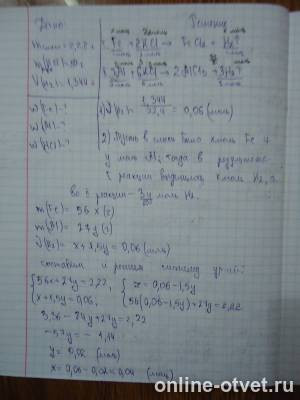 Дано:
Решение
m смеси = 2,22 г
V(H₂) = 1,344 л
Fe + 2HCl → FeCl₂ + H₂↑
2Al + 6HCl → 2AlCl₃ + 3H₂↑
w(Fe) - ?
w(Al) - ?
1) = 1,344 / 22,4 = 0,06 (моль)
2) Пусть в смеси было x моль Fe и
y моль Al, тогда в результате
реакции выделилось x моль H₂, а
во 2 реакции - 3y моль H₂.
m(Fe) = 56 x (г)
m(Al) = 27 y (г)
ν(H₂) = x + 1,5y = 0,06 (моль)
составим и решим систему ур-ий:
56x + 27y = 2,22, x = 0,06 - 1,5y
x + 1,5y = 0,06; 56(0,06 - 1,5y) + 27y = 2,22
3,36 - 84y + 27y = 2,22
-57y = -1,14
y = 0,02 (моль)
x = 0,06 - 0,02 = 0,04 (моль)
online-otvet.ru